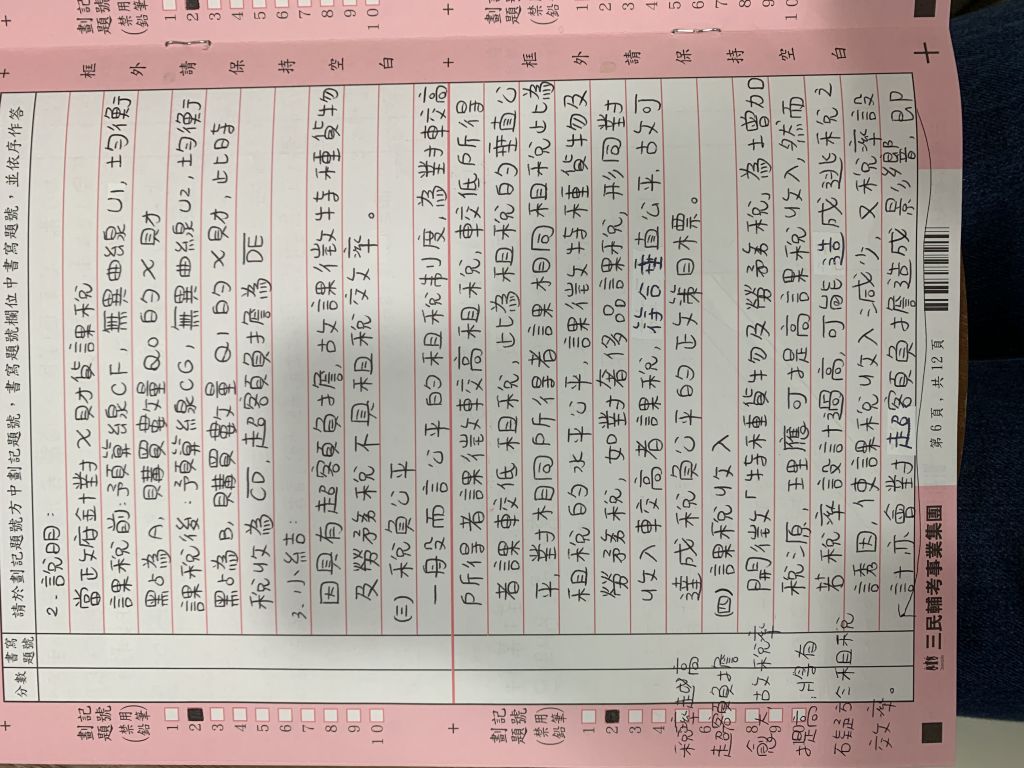 請於劃記題號方中劃記題號，書寫題號欄位中書寫題號，並依序作答
分數
書寫題號
劃記題號
(禁用鉛筆)
1
2
3
4
5
6
7
8
9
10
2.說明：
當政府針對X財貨課稅
課稅前：預算線CF，無異曲線U1，均衡
點為A，購買數量Q0的X財
課稅後：預算線CG，無異曲線U2，均衡
點為B，購買數量Q1的X財，此時
稅收為CD，超額負擔為DE
3.小結：
因具有超額負擔，故課徵特種貨物
及勞務稅不具租稅效率。
(三)稅負公平
一般而言公平的租稅制度，為對較高
所得者課徵較高租稅，較低所得
者課較低租稅，此為租稅的垂直公
平，對相同所得者課相同租稅此為
租稅的水平公平，課徵特種貨物及
勞務稅，如對奢侈品課稅，形同對
收入較高者課稅，符合垂直公平，故可
達成稅負公平的政策目標。
(四)課稅收入
開徵「特種貨物及勞務稅，為增加
稅源，理應可提高課稅收入，然而
若稅率設計過高，可能造成逃稅之
誘因，使課稅收入減少，又稅率設
計亦會對超額負擔造成影響，即
稅率越高
超額負擔
愈大，故稅率
提高，將有
租稅
效率。
劃記題號
(禁用鉛筆)
1
2
3
4
8
9
框外請保持空白
框外請保持空白
三民輔考事業集團
第 6 頁，共 12 頁
劃記題號
(禁用鉛筆)
1
2
3
4
5
6
7
8
9
10
劃記題號
(禁用鉛筆)
1
2
3
4
5
6
7
8
9
10